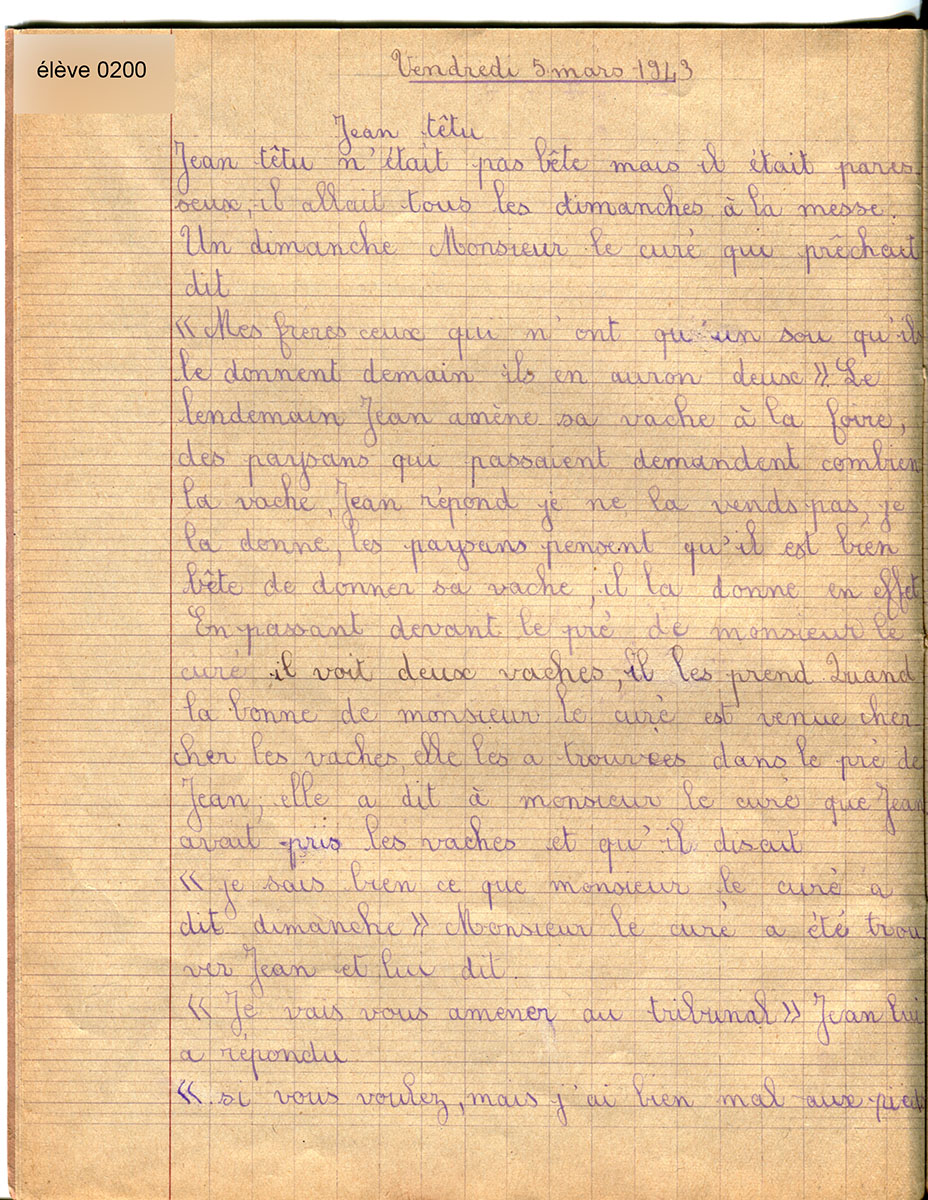 élève 0200
Vendredi 5 mars 1943
Jean têtu
Jean têtu n'était pas bête mais il était pares
seux, il allait tous les dimanches à la messe.
Un dimanche Monsieur le curé qui prêchait
dit
« Mes freres ceux qui n'ont qu'un sou qu'ils
le donnent demain ils en auron deux ». Le
lendemain Jean amène sa vache à la foire,
des paysans qui passaient demandent combien
la vache, Jean répond je ne la vends pas, je
la donne, les paysans pensent qu'il est bien
bête de donner sa vache, il la donne en effet
En passant devant le pré de monsieur le
curé il voit deux vaches, il les prend Quand
la bonne de monsieur le curé est venue cher
cher les vaches, elle les a trouvées dans le pré de
Jean, elle a dit à monsieur le curé que Jean
avait pris les vaches et qu'il disait
« je sais bien ce que monsieur le curé a
dit dimanche » Monsieur le curé a été trou
ver Jean et lui dit.
« Je vais vous amener au tribunal » Jean lui
a répondu
« si vous voulez, mais j'ai bien mal aux pieds